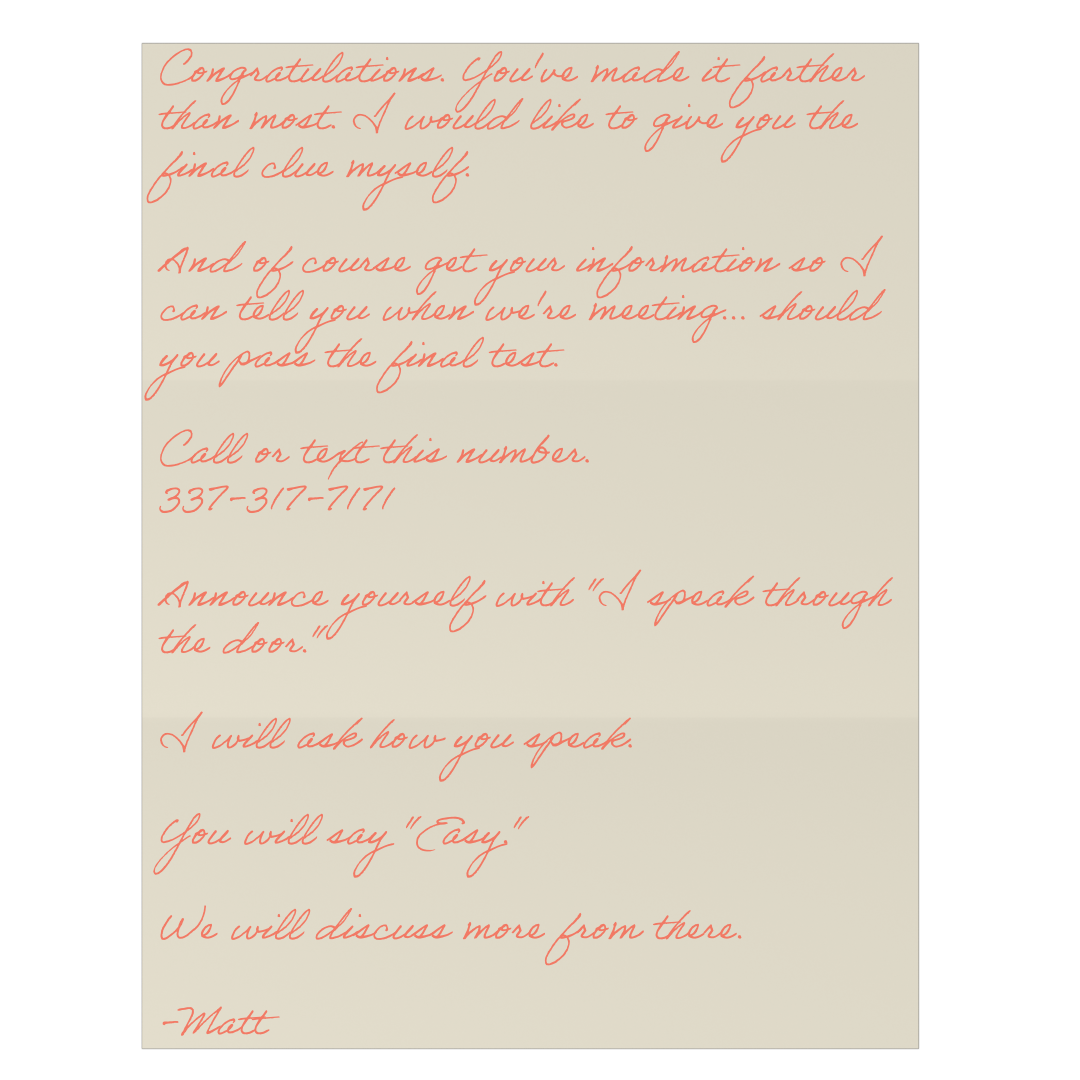 Congratulations. You've made it farther
than most. I would like to give you the
final clue myself.
And of course get your information so I
can tell you when we're meeting... should
you pass the final test.
Call or text this number.
337-317-7171
Announce yourself with "I speak through
the door."
I will ask how you speak.
You will say "Easy."
We will discuss more from there.
-Matt